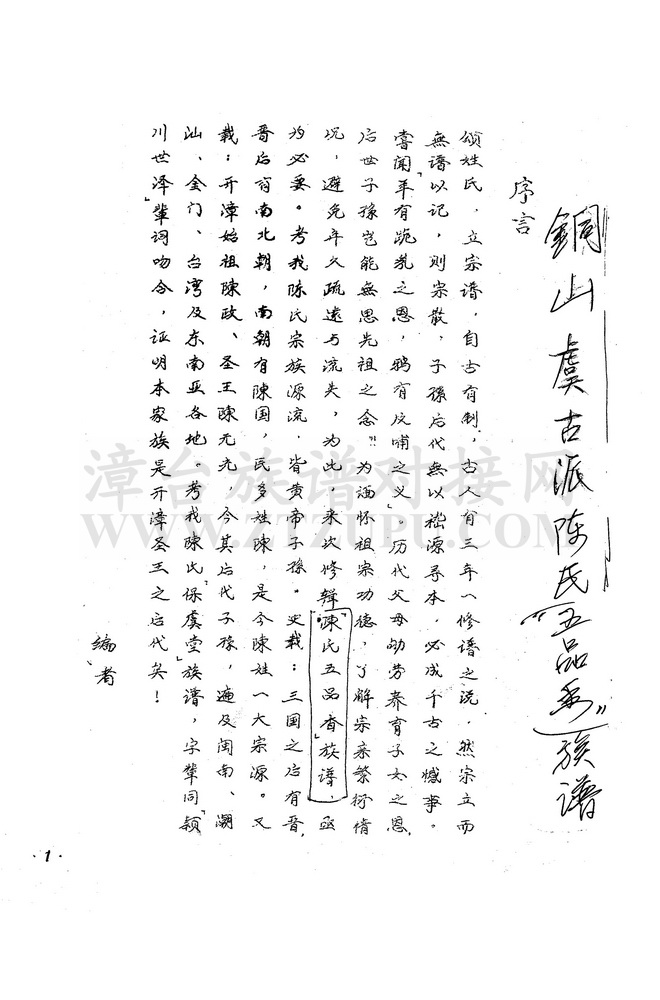 銅山虞古派陈氏《五品香》族谱
序言
颂姓氏、立宗谱，自古有制，古人有三年一修谱之说，然宗立而
無谱以记，则宗散，子孫后代無以嵇源寻本，必成千古之憾事。
嘗闻羊有跪乳之恩，鸦有反哺之义"。历代父母劬劳养育子女之恩
后世子孫岂能無思先祖之念"！为缅怀祖宗功德，了解宗亲繁衍情
况，避免年久疏遠与流失，为此，来次修辑"陳氏五品香族谱，函
为必要。考我陈氏宗族源流，皆黄帝子孫。史载：三国之后有晋，
晋后有南北朝，南朝有陳国，民多姓陳，是今陳姓一大宗源。又
载：开漳始祖陳政、圣王陳元光，今其后代子孫，遍及闽南、潮
汕、金门、台湾及东南亚各地。考我陳氏"保虞堂"族谱，字輩同"颖
川世泽"輩词吻合，证明本家族是开漳圣王之后代矣！
编者
·1·
漳台族谱对接网
WWW.ZTZUPU.COM